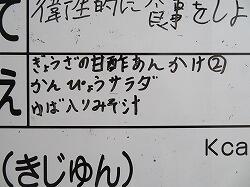 て 衛生的に食事をしよ
え ぎょうざの甘酢あんかけ②
かんぴょうサラダ
ゆば入りみそ汁
Kca
(きじゅん)